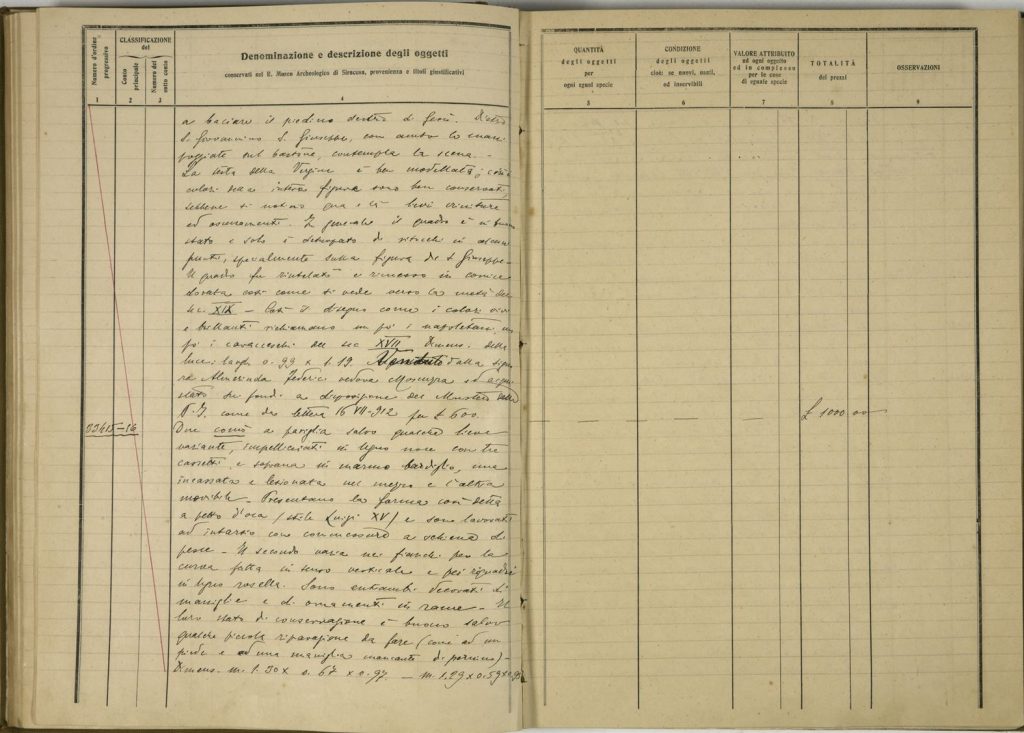 Numero d'ordine progressivo
CLASSIFICAZIONE del
Conto principale
Numero del sotto conto
Denominazione e descrizione degli oggetti
conservati nel R. Museo Archeologico di Siracusa, provenienza e titoli giustificativi
1 2 3 4
a baciare il piedino destro di Gesù. Dietro
S. Giovannino S. Giuseppe, con ambo le mani
poggiate sul bastone, contempla la scena.—
La testa della Vergine è ben modellata, i
colori della intera figura sono ben conservati,
sebbene si notino qua e là lievi
ed oscuramenti. In generale il quadro è in buono
stato e solo è deturpato da ritocchi in alcuni
punti, specialmente sulla figura di S. Giuseppe—
Il quadro fu rintelato e rimesso in cornice
dorata così come si vede verso la metà del
sec. XIX — Così il disegno come i colori vivi
e brillanti richiamano un po' i napoletani, un
po' i caracceschi del sec XVII Dimens. della
luce: largh 0.99 x 1.19. Venduto dalla signo
ra Almerinda Federici vedova ed acqui
stato su fondi a disposizione del Ministero della
P.I. come da lettera 16 VII-912 per £ 600.
33415-16
Due comò a pariglia salvo qualche lieve
variante, impellicciati in legno noce con tre
cassetti e soprana in marmo bardiglio, una
incassata e lesionata nel mezzo e l'altra
movibile — Presentano la forma così detta
a petto d'oca (stile Luigi XV) e sono lavorati
ad intarsio con commessura a schiena di
pesce — Il secondo varia nei fianchi per la
curva fatta in senso verticale e pei riquadri
in legno rosella. Sono entrambi decorati di
maniglie e di ornamenti in rame — Il
loro stato di conservazione è buono salvo
qualche piccola riparazione da fare (come ad un
piede e ad una maniglia mancante di pernino)—
Dimens. m. 1.30 x 0.67 x 0.97. — m. 1.29 x 0.59 x 0.95
QUANTITÀ degli oggetti per ogni egual specie
CONDIZIONE degli oggetti cioè: se nuovi, usati, od inservibili
VALORE ATTRIBUITO ad ogni oggetto ed in complesso per le cose di eguale specie
TOTALITÀ dei prezzi
OSSERVAZIONI
5 6 7 8 9
— — — £ 1000 00